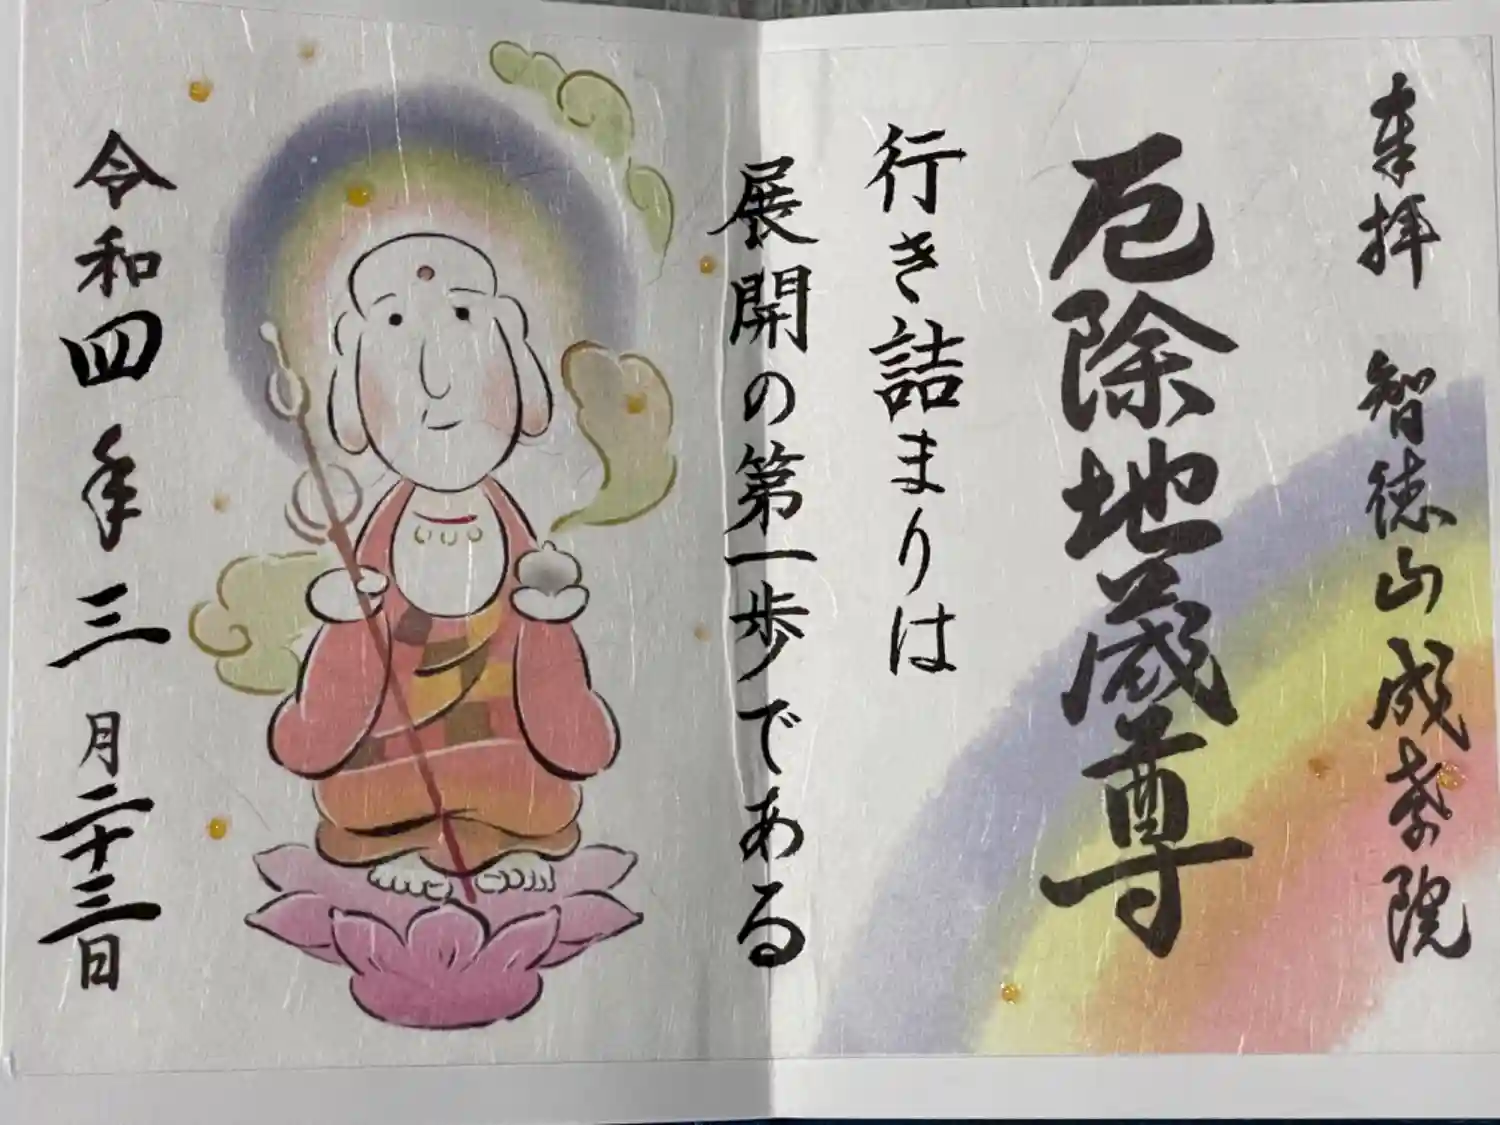 奉拝 智徳山 成孝院
厄除地蔵尊
行き詰まりは
展開の第一歩である
令和四年三月二十三日